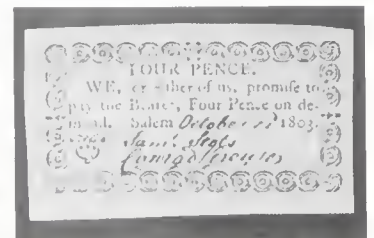 FOUR PENCE.
WE, or either of us, promise to
pay the Bearer, Four Pence on de-
mand. Salem October 1803.
Saml